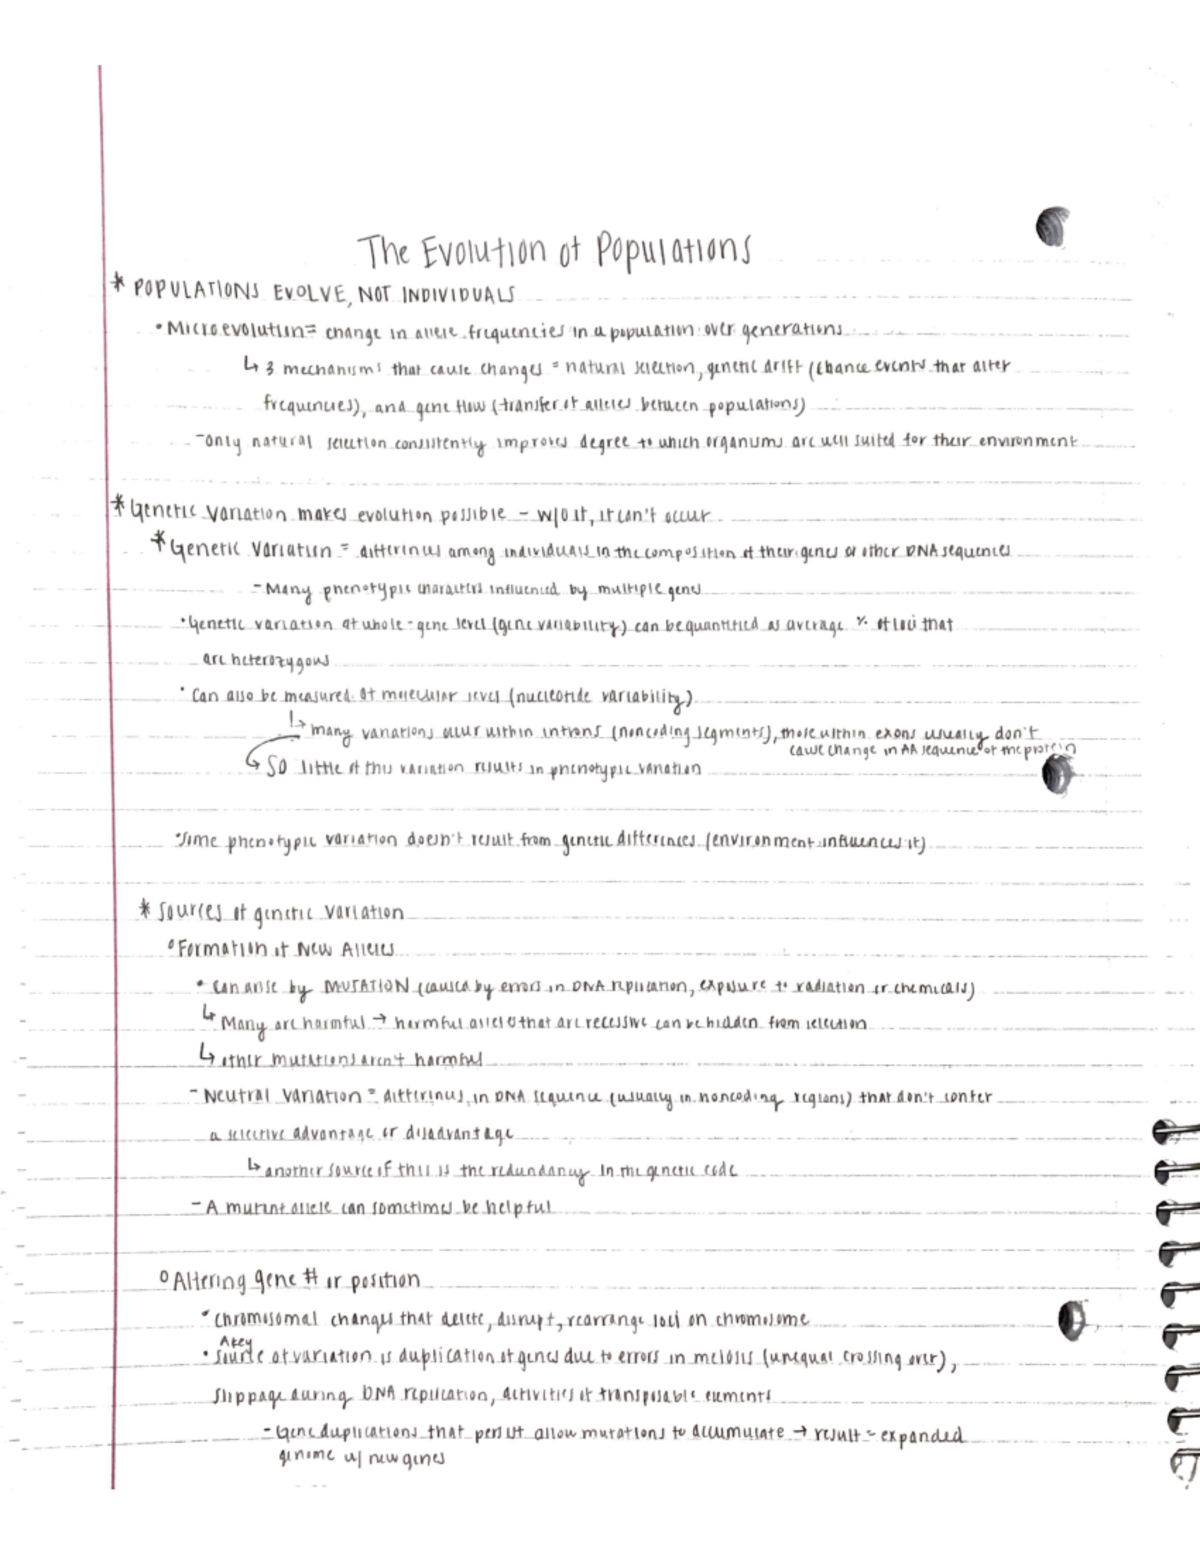 The Evolution of Populations
* POPULATIONS EVOLVE, NOT INDIVIDUALS
• Microevolution = change in allele frequencies in a population over generations
↳ 3 mechanisms that cause changes = natural selection, genetic drift (chance events that alter
frequencies), and gene flow (transfer of alleles between populations)
- only natural selection consistently improves degree to which organisms are well suited for their environment
* Genetic variation makes evolution possible - w/o it, it can't occur
* Genetic variation = differences among individuals in the composition of their genes or other DNA sequences
- Many phenotypic characters influenced by multiple genes
• Genetic variation at whole-gene level (gene variability) can be quantified as average % of loci that
are heterozygous
• Can also be measured at molecular level (nucleotide variability)
↳ many variations occur within introns (noncoding segments), those within exons usually don't
cause change in AA sequence of the protein
↳ SO little of this variation results in phenotypic variation
• Some phenotypic variation doesn't result from genetic differences (environment influences it)
* Sources of genetic variation
° Formation of New Alleles
• Can arise by MUTATION (caused by errors in DNA replication, exposure to radiation or chemicals)
↳ Many are harmful → harmful alleles that are recessive can be hidden from selection
↳ other mutations aren't harmful
- Neutral variation = differences in DNA sequence (usually in noncoding regions) that don't confer
a selective advantage or disadvantage
↳ another source of this is the redundancy in the genetic code
- A mutant allele can sometimes be helpful
° Altering gene # or position
• chromosomal changes that delete, disrupt, rearrange loci on chromosome
A key
• source of variation is duplication of genes due to errors in meiosis (unequal crossing over),
slippage during DNA replication, activities of transposable elements
- Gene duplications that persist allow mutations to accumulate → result = expanded
genome w/ new genes